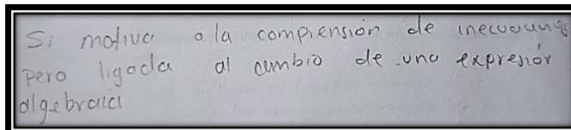 Si motiva a la comprensión de inecuaciones
pero ligada al cambio de una expresión
algebraica